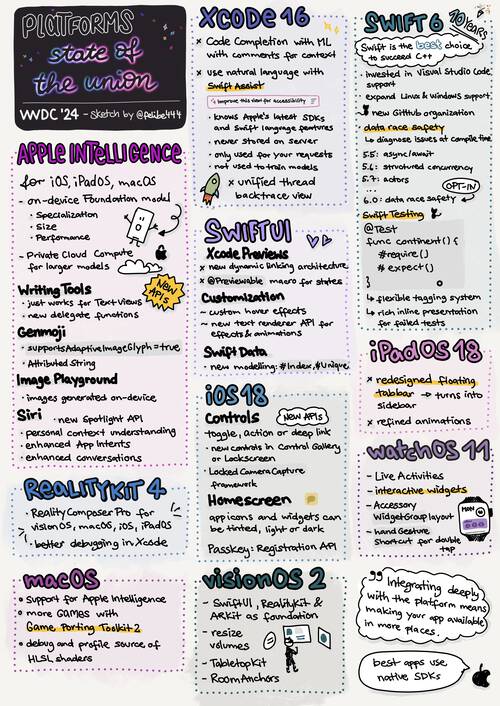 PLATFORMS
state of
the union
WWDC '24 - Sketch by @felibe444
APPLE INTELLIGENCE
for iOS, iPadOS, macOS
- on-device Foundation model
· Specialization
· Size
· Performance
- Private Cloud Compute
for larger models
NEW APIs
Writing Tools
· just works for Text-views
· new delegate functions
Genmoji
· supportsAdaptiveImageGlyph = true
· Attributed String
Image Playground
· images generated on-device
Siri · new Spotlight API
· personal context understanding
· enhanced App Intents
· enhanced conversations
REALITYKIT 4
· RealityComposer Pro for
visionOS, macOS, iOS, iPadOS
· better debugging in Xcode
macOS
• support for Apple Intelligence
• more GAMES with
Game Porting Toolkit 2
• debug and profile source of
HLSL shaders
XCODE 16
x Code Completion with ML
with comments for context
x use natural language with
Swift Assist
Improve this view for accessibility
· knows Apple's latest SDKs
and Swift language features
· never stored on server
· only used for your requests
· not used to train models
x unified thread
backtrace view
SWIFTUI
Xcode Previews
x new dynamic linking architecture
x @Previewable macro for states
Customization
~ custom hover effects
~ new text renderer API for
effects & animations
Swift Data
- new modelling: #Index, #Unique
iOS 18
Controls
NEW APIs
toggle, action or deep link
· new controls in Control Gallery
or Lockscreen
· Locked Camera Capture
framework
Homescreen
app icons and widgets can
be tinted, light or dark
Passkey: Registration API
visionOS 2
- SwiftUI, RealityKit &
ARKit as foundation
- resize
volumes
- TabletopKit
- Room Anchors
SWIFT 6
10 YEARS
Swift is the best choice
to succeed C++
· invested in Visual Studio Code
support
· expand Linux & Windows support
new GitHub organization
data race safety
↳ diagnose issues at compile time
5.5: async/await
5.6: structured concurrency
5.7: actors
...
OPT-IN
6.0: data race safety
Swift Testing
@Test
func continent() {
#require()
#expect()
}
↳ flexible tagging system
↳ rich inline presentation
for failed tests
iPadOS 18
x redesigned floating
tabbar → turns into
sidebar
x refined animations
watchOS 11
- Live Activities
- interactive widgets
- Accessory
WidgetGroup layout
- hand Gesture
Shortcut for double
tap
" Integrating deeply
with the platform means
making your app available
in more places. "
best apps use
native SDKs